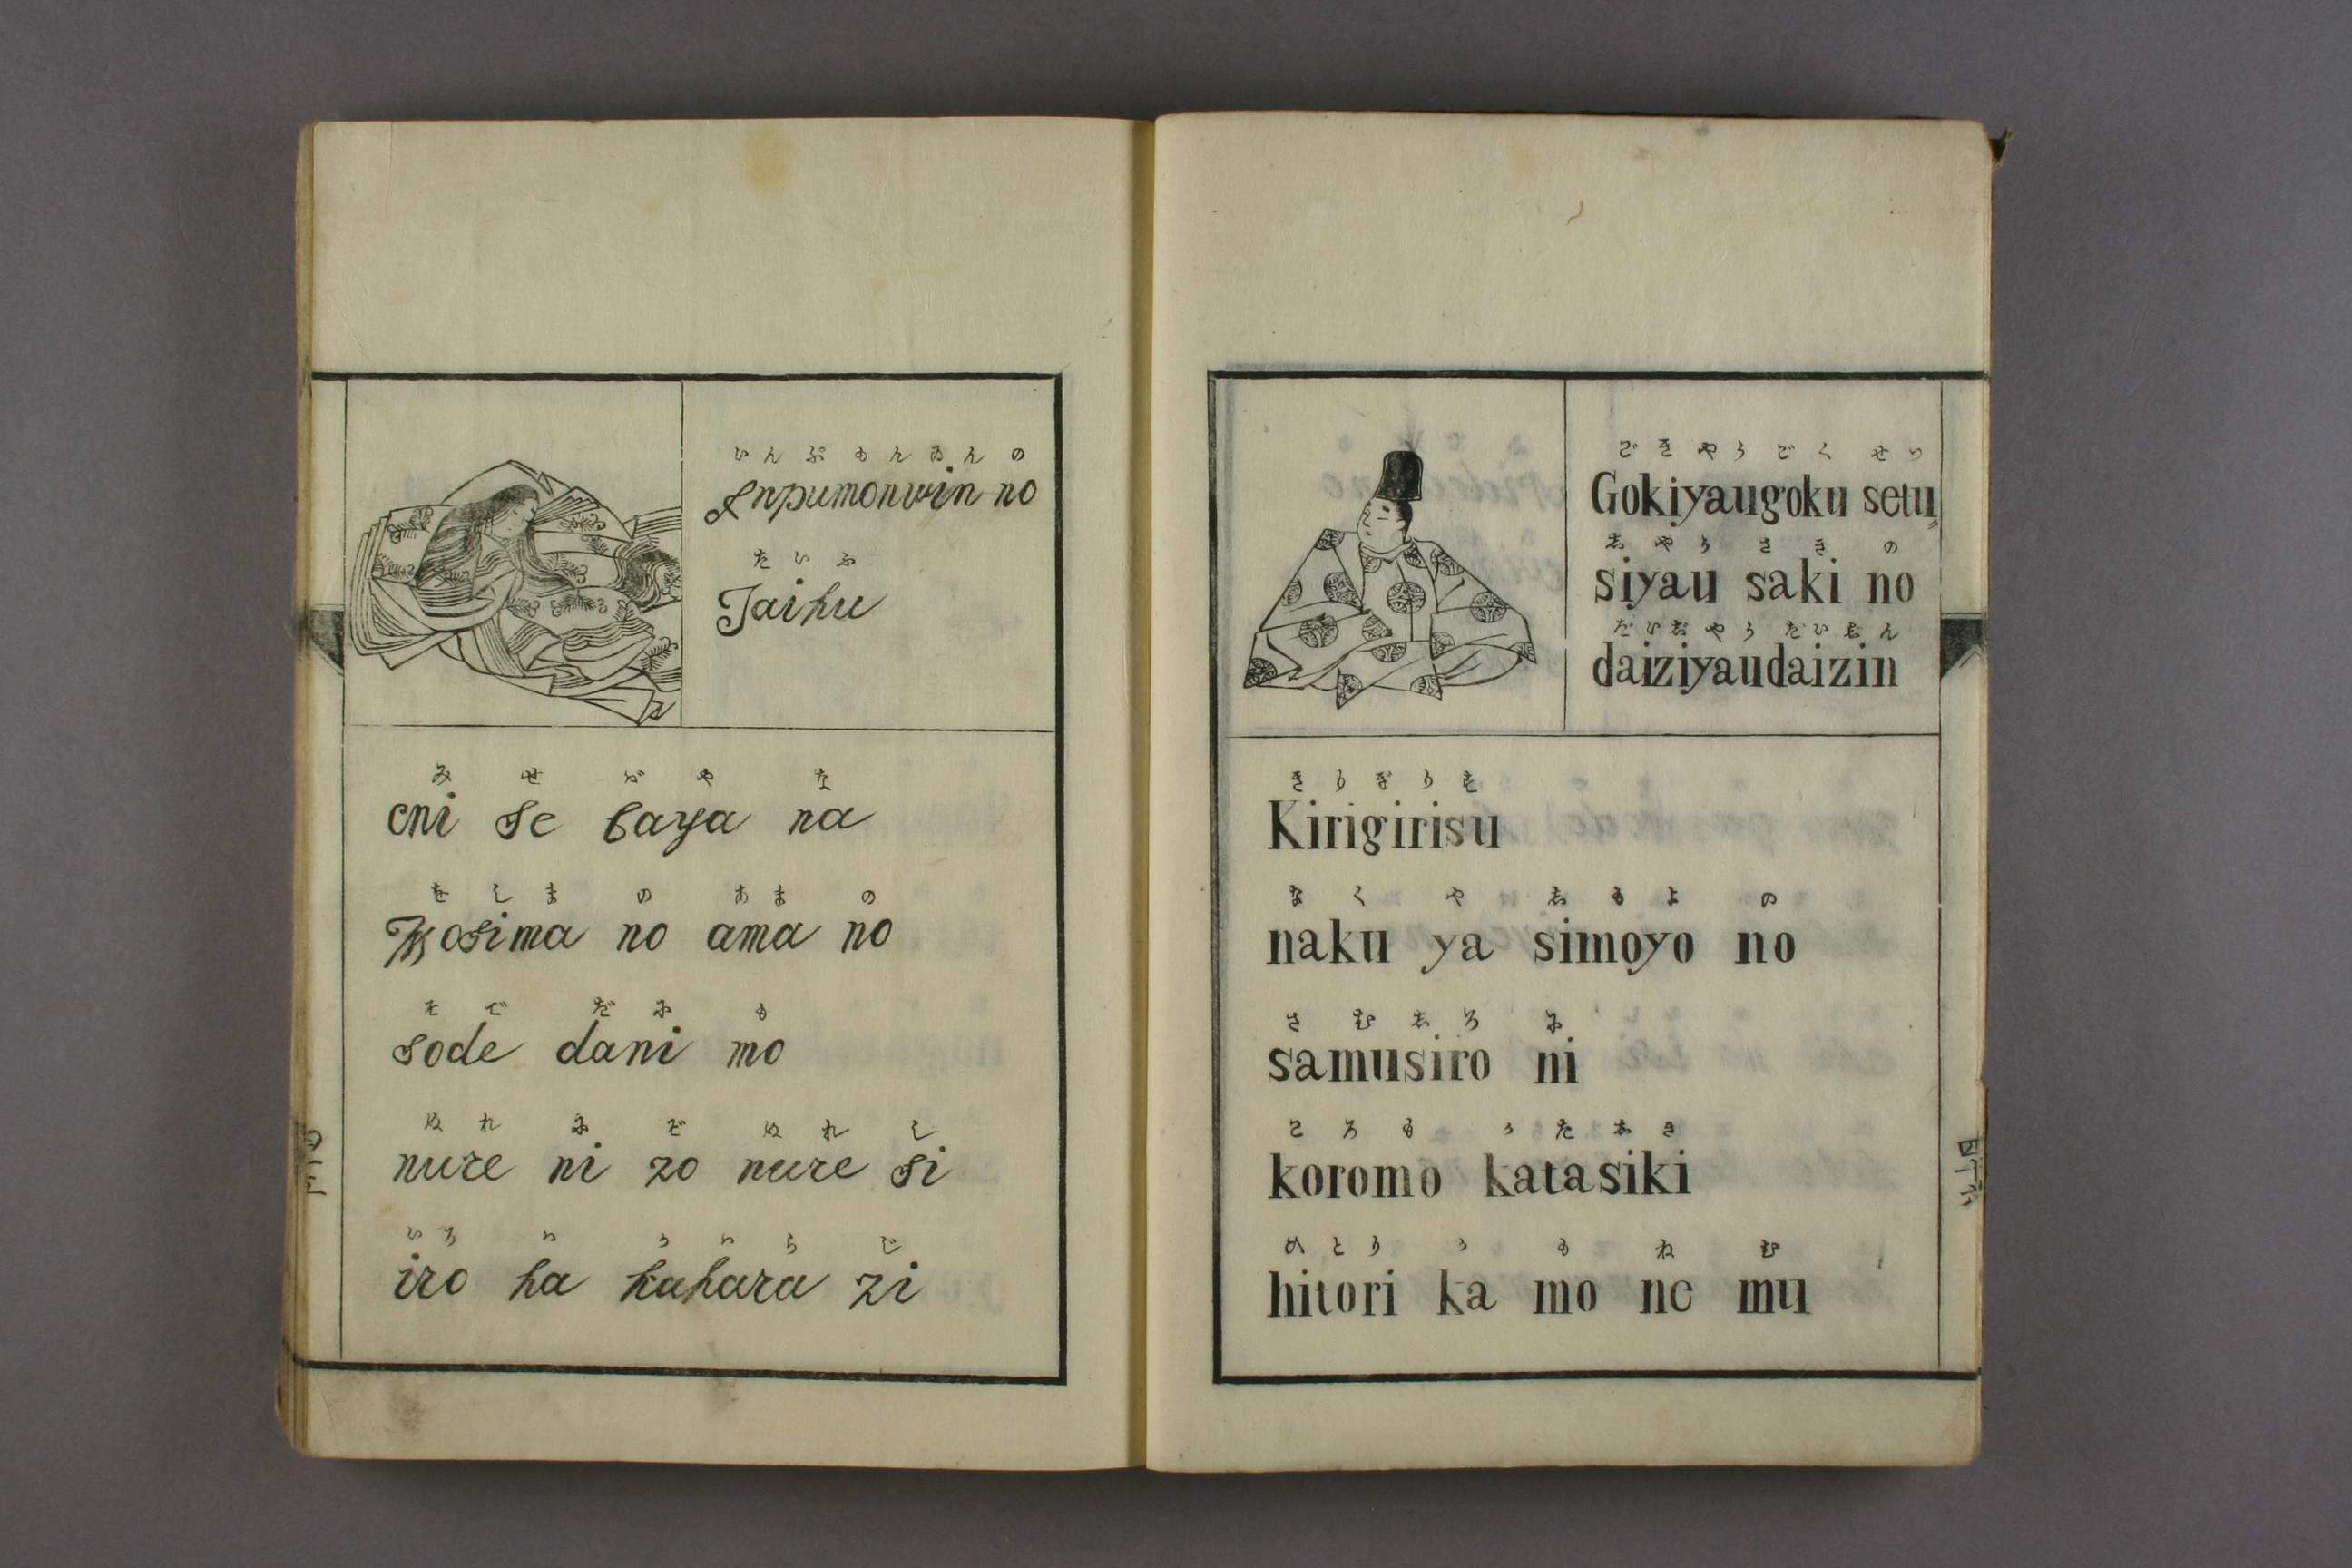 いんぷもんゐんの
Inpumonwin no
たいふ
Taihu
みせばやな
mi se baya na
をしまのあまの
Wosima no ama no
そでだにも
sode dani mo
ぬれにぞぬれし
nure ni zo nure si
いろはかはらじ
iro ha kahara zi
ごきやうごくせつ
Gokiyaugoku setu〟
しやうさきの
siyau saki no
だいじやうだいじん
daiziyaudaizin
きりぎりす
Kirigirisu
なくやしもよの
naku ya simoyo no
さむしろに
samusiro ni
ころもかたしき
koromo katasiki
ひとりかもねむ
hitori ka mo ne mu